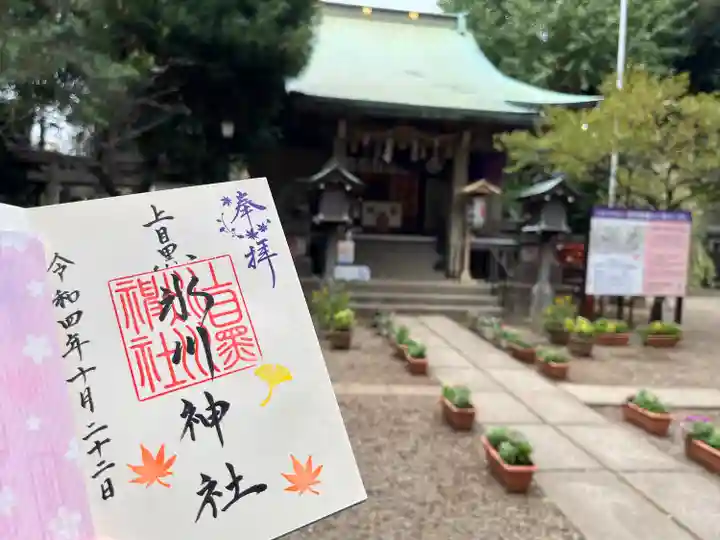 奉拝
上目黒
氷川神社
上目黒氷川神社
令和四年十月二十二日